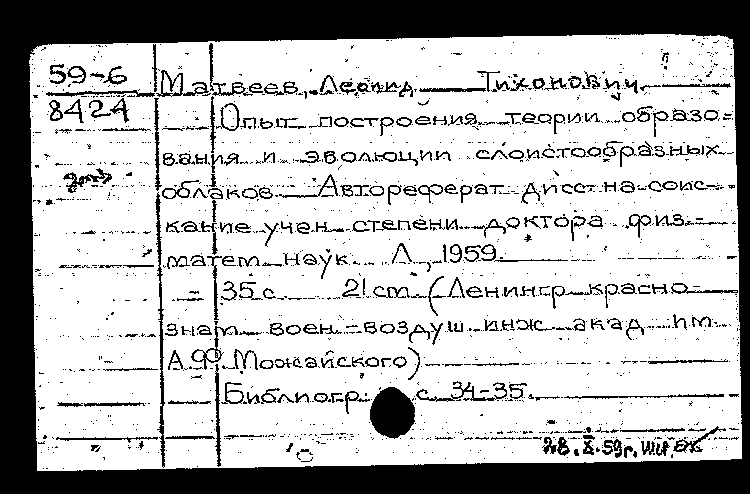 59-6 Матвеев, Леонид Тихонович.
8424 Опыт построения теории образо=
вания и эволюции слоистообразных
облаков. Автореферат дисс. на соис-
кание учен. степени доктора физ.-
матем. наук. Л., 1959.
- 35 с. 21 cm. (Ленингр. красно-
знам. воен.-воздуш. инж. акад. им.
А.Ф. Можайского)
Библиогр.: с. 34-35.
28.X.59г.